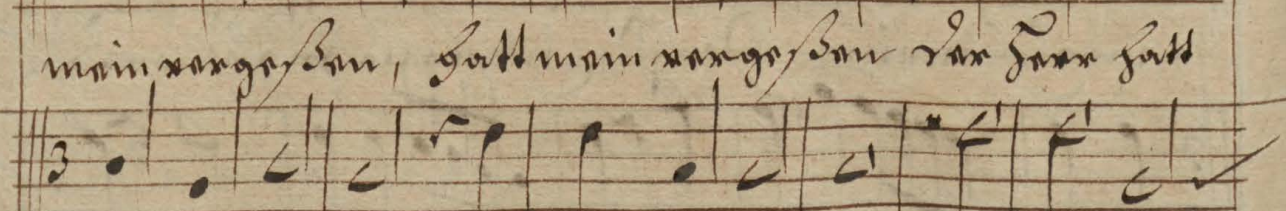 mein vergeßen, hatt mein vergeßen der Herr hatt
3